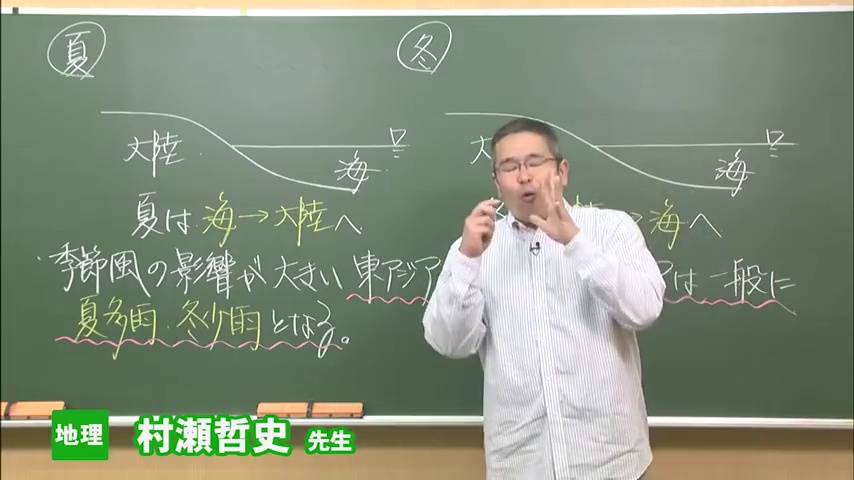 夏
冬
大陸
海
大
海
夏は 海→大陸へ
海へ
季節風の影響が大きい 東アジア
アは一般に
夏多雨・冬少雨となる。
地理 村瀬哲史 先生